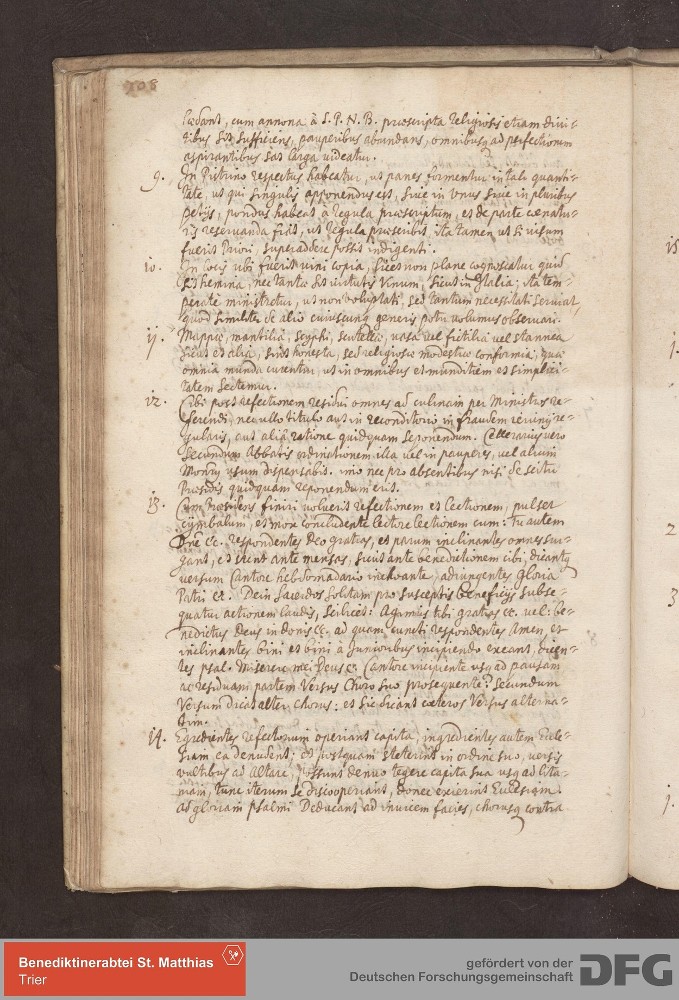 108
cedant, cum annona à S. P. N. B. præscripta religiosis etiam divi-
tibus sit sufficiens, pauperibus abundans, omnibusq ad perfectionem
aspirantibus sat larga videatur.
9. In Pistrino respectus habeatur, ut panes formentur in tali quanti-
tate, ut qui singulis apponendus est, sive in unus sive in pluribus
petijs, pondus habeat a regula præscriptum, et de parte cænatu-
ris reservanda fiat, ut regula præscribit, ita tamen ut si visum
fuerit Priori, superaddere possit indigenti.
10. In locis ubi fuerit vini copia, licet non plane cognoscatur quid
sit hemina, nec tantæ sit virtutis vinum, sicut in Italia; ita tem-
perate ministretur, ut non voluptati, sed tantum necessitati serviat,
quod similiter de alio cuiuscunq generis potu volumus observari.
11. Mappæ, mantilia, scyphi, scutellæ, vasa vel fictilia vel stannea
sicut et alia, sint honesta, sed religiosæ modestiæ conformia, quæ
omnia munda curentur, ut in omnibus et munditiem et simplici-
tatem sectemur.
12. Cibi post refectionem residui omnes ad culinam per Ministros re-
ferendi, nec ullo titulo aut in reconditorio in fraudem ieiunij re-
gularis, aut alia ratione quidquam seponendum. Cellerarius vero
secundum Abbatis ordinationem illa vel in pauperes, vel alium
Monrij usum dispensabit. imo nec pro absentibus nisi de scitu
Præsidis quidquam reponendum erit.
13. Cum Præsidens finiri voluerit refectionem et lectionem, pulset
cymbalum, et mox concludente lectore lectionem cum: Tu autem
Dne &c. respondentes Deo gratias, et parum inclinantes omnes sur-
gant, et stent ante mensas, sicut ante benedictionem cibi, dicantq
versum Cantore hebdomadario inchoante, adiungentes Gloria
Patri &c. Dein Sacerdos solitam pro susceptis beneficijs subse-
quatur actionem laudis, scilicet: Agimus tibi gratias &c. vel: be-
nedictus Deus in donis &c. ad quam cuncti respondentes Amen, et
inclinantes bini et bini à Junioribus incipiendo exeant, dicen-
tes psal. Miserere mei Deus &c. Cantore incipiente usq ad pausam
ac residuam partem Versus Choro suo prosequente: secundum
Versum dicat alter chorus: et sic dicant cæteros Versus alterna-
tim.
14. Egredientes refectorium operiant capita, ingredientes autem Eccle-
siam ea denudent; et postquam steterint in ordine suo, versis
vultibus ad Altare, possunt denuo tegere capita sua usq ad lita-
niam, tunc iterum se discooperiant, donec exierint Ecclesiam.
Ad gloriam psalmi Deducant ad invicem facies, chorusq contra
2
3
Benediktinerabtei St. Matthias
Trier
gefördert von der
Deutschen Forschungsgemeinschaft
DFG